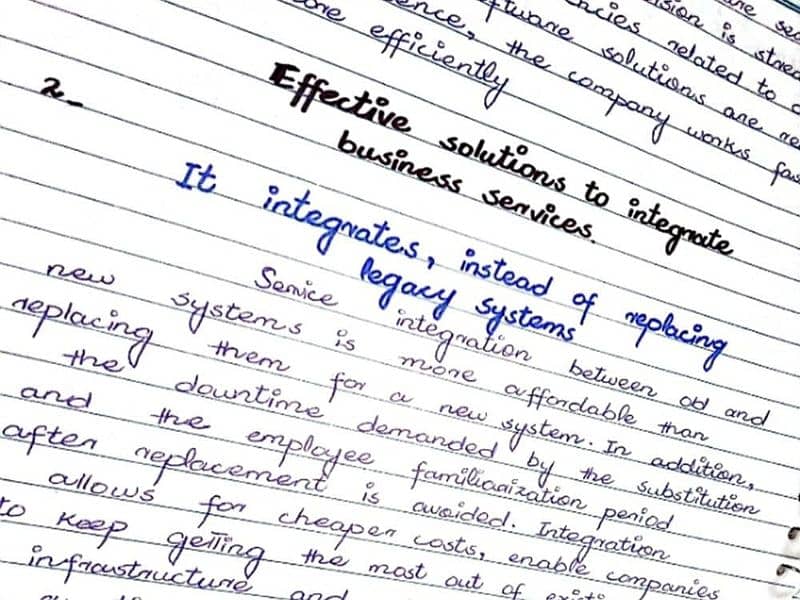 is stored
ence, the software solutions are
related to
more efficiently
the company works fas
2_
Effective solutions to integrate
business services.
It integrates, instead of replacing
legacy systems
Service integration between old and
new systems is more affordable than
replacing them for a new system. In addition,
the downtime demanded by the substitution
and the employee familiarization period
after replacement is avoided. Integration
allows for cheaper costs, enable companies
to keep getting the most out of
infraustructure and